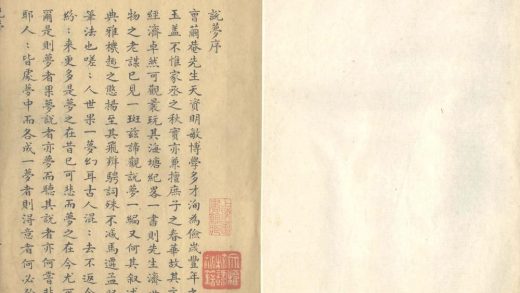 說夢序
曹繭菴先生天資明敏博學多才洵為儉歲豐年之
玉盖不惟家丞之秋實亦兼擅庶子之春華故其
經濟卓然可觀最玩其海塘紀畧一書則先生濟
物之老謀已見一斑兹諦觀說夢一編又何其叙
典雅機趣之憨揚至其飛辯騁詞殊不减馬遷孟
筆法也嗟：人世果一夢幻耳古人混：去不返今
紛：来更多是夢之在昔已可悲而夢之在今尤可
爾是則夢者果夢說者亦夢而聽其說者亦何嘗
耶人：皆處夢中而各成一夢者則得意者何必